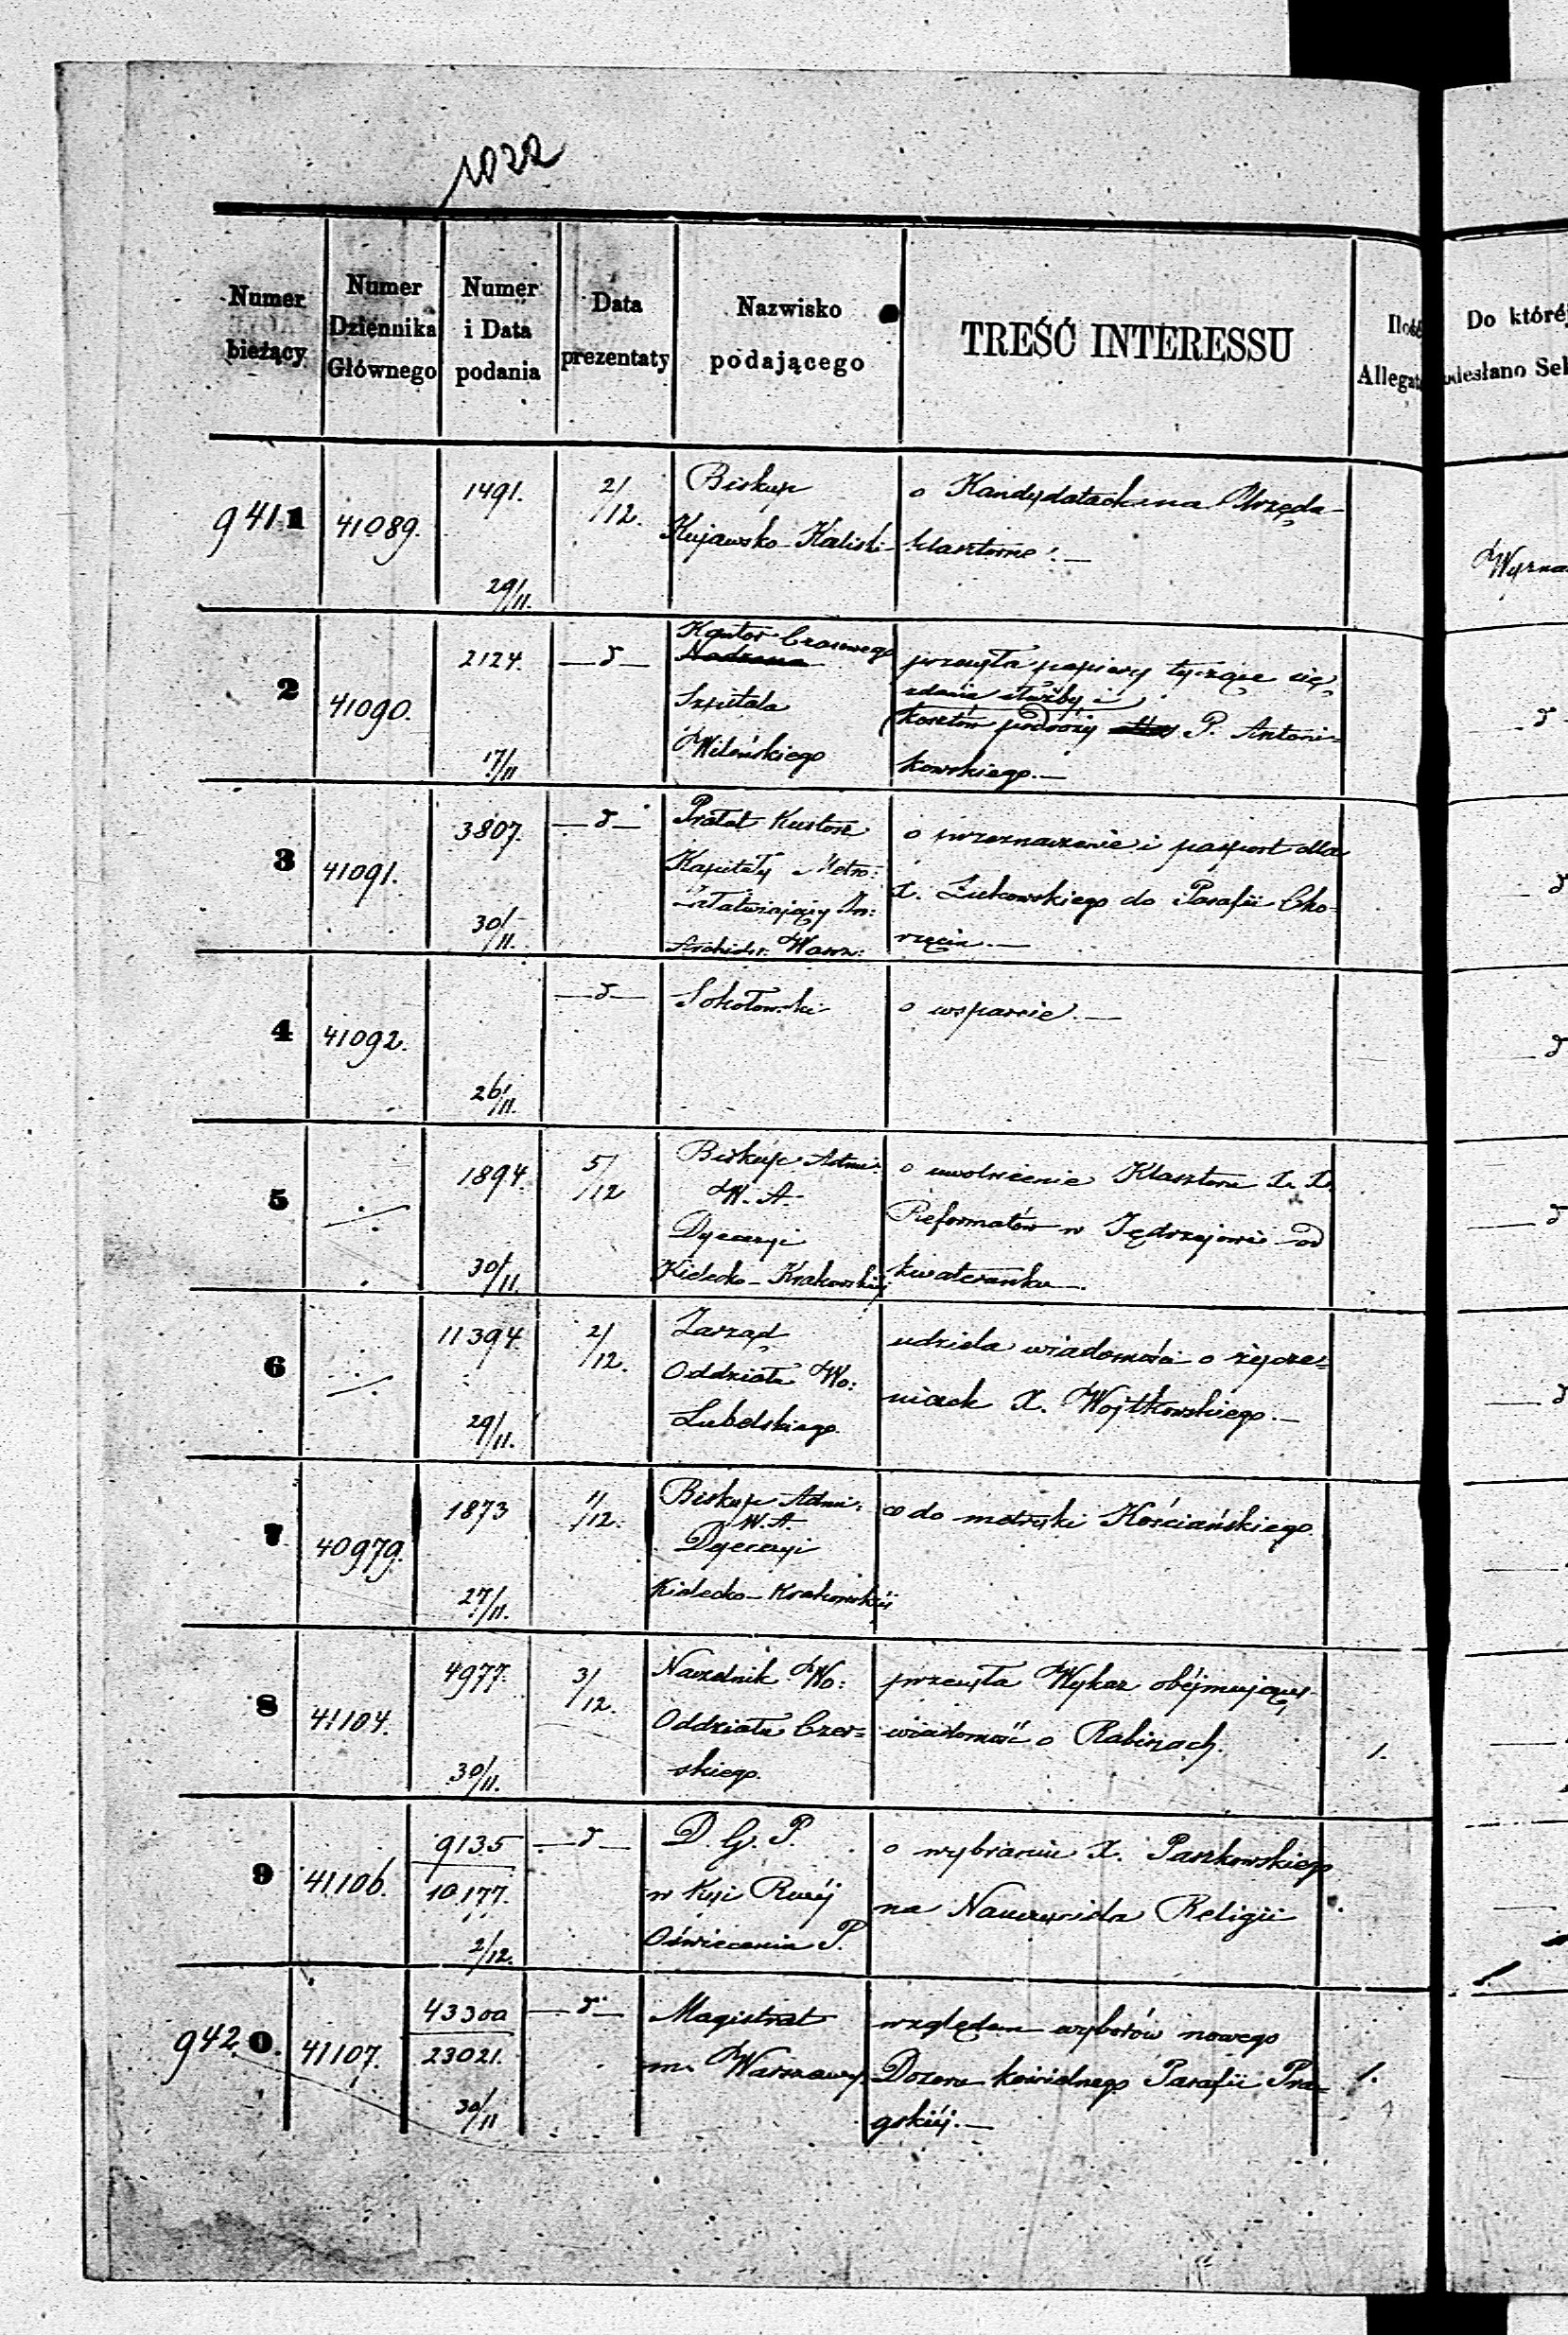 1022
Numer bieżący
Numer Dziennika Głównego
Numer i Data podania
Data prezentaty
Nazwisko podającego
TREŚĆ INTERESSU
Ilość Allegat
Do któréj
odesłano Sek
9411
41089.
1491.
29/11.
2/12.
Biskup
Kujawsko-Kaliski
o Kandydatach na Urzęda
klasztorne.—
2
41090.
2124.
17/11
—d—
Kantor Czasowego
Szpitala
Wileńskiego
przesyła papiery tyczące się
zdania służby i
kosztów podróży P. Antoni=
kowskiego.—
d
3
41091.
3807.
30/11.
—d—
Prałat Kustosz
Kapituły Metro:
Załatwiający In:
Archidr. Warsz:
o przeznaczenie i paszport dla
X. Żukowskiego do Parafii Cho=
rzęcin.—
d
4
41092.
26/11.
—d—
Sokołowski
o wsparcie.—
d
5
1894.
30/11.
5/12
Biskup Admi:
W. A.
Dyecezyi
Kielecko-Krakowskiéj
o uwolnienie Klasztoru X. X.
Reformatów w Jędrzejowie od
kwaterunku.—
d
6
11394.
29/11.
2/12.
Zarząd
Oddziału Wo:
Lubelskiego.
udziela wiadomości o życze=
niach X. Wojtkowskiego.—
d
7
40979.
1873
27/11.
1/12.
Biskup Admi:
W. A.
Dyecezyi
Kielecko-Krakowskiéj
co do metryki Kościańskiego.
8
41104.
4977.
30/11.
3/12.
Naczelnik Wo:
Oddziału Czer=
skiego.
przesyła Wykaz obejmujący
wiadomość o Rabinach.
1.
9
41106.
9135
10177.
2/12.
—d—
D. G. P.
w Kzi Rzéj
Oświecenia P.
o wybraniu X. Paszkowskiego
na Nauczyciela Religii
9420.
41107.
43300
23021.
30/11
—d—
Magistrat
m. Warszawy.
względem wyborów nowego
Dozoru kościelnego Parafii Pra=
gskiéj.—
1.